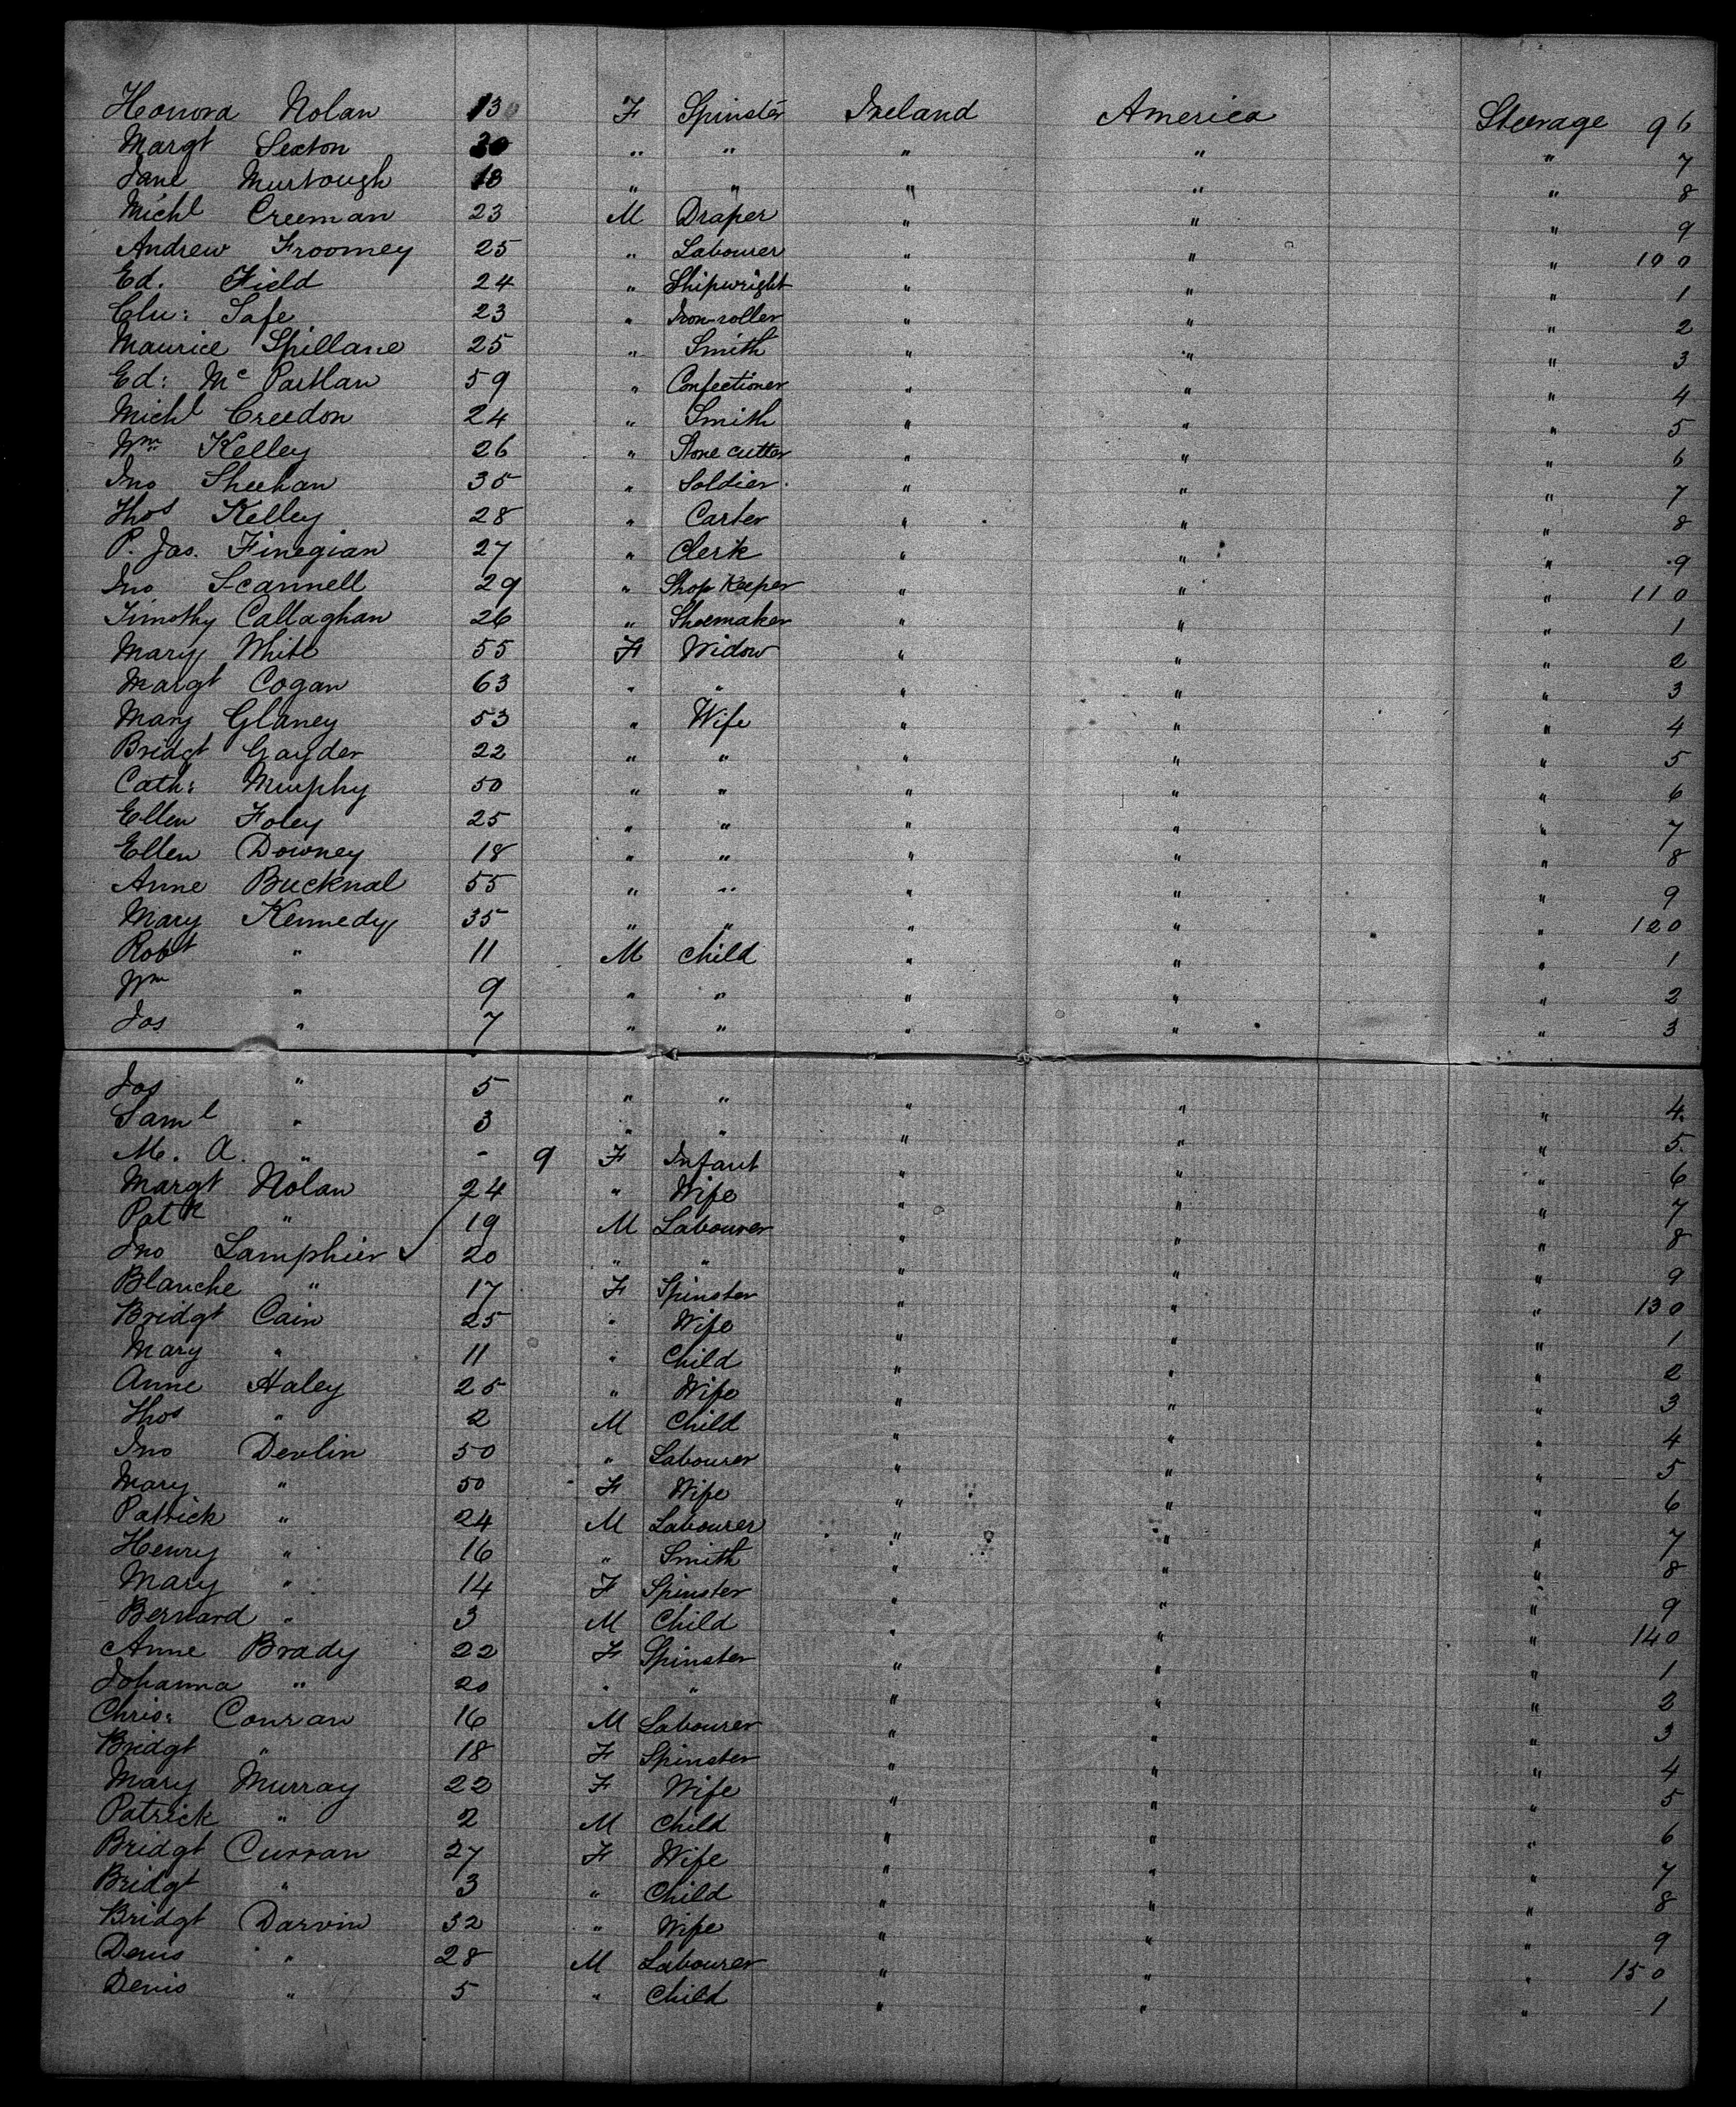 Honora Nolan 13 F Spinster Ireland America Steerage 96
Margt Sexton 30 " " " " " 7
Jane Murtough 18 " " " " " 8
Michl Creeman 23 M Draper " " " 9
Andrew Froomey 25 " Labourer " " " 100
Ed. Field 24 " Shipwright " " " 1
Chr: Safe 23 " Iron-roller " " " 2
Maurice Spillane 25 " Smith " " " 3
Ed: Mc Partlan 59 " Confectioner " " " 4
Michl Creedon 24 " Smith " " " 5
Wm Kelley 26 " Stone cutter " " " 6
Jno Sheehan 35 " Soldier " " " 7
Thos Kelley 28 " Carter " " " 8
P. Jas. Finegian 27 " Clerk " " " 9
Jno Scannell 29 " Shop Keeper " " " 110
Timothy Callaghan 26 " Shoemaker " " " 1
Mary White 55 F Widow " " " 2
Margt Cogan 63 " " " " " 3
Mary Glaney 53 " Wife " " " 4
Bridgt Gayder 22 " " " " " 5
Cath: Murphy 50 " " " " " 6
Ellen Foley 25 " " " " " 7
Ellen Downey 18 " " " " " 8
Anne Bucknal 55 " " " " " 9
Mary Kennedy 35 " " " " " 120
Robt " 11 M Child " " " 1
Wm " 9 " " " " " 2
Jas " 7 " " " " " 3
Jos " 5 " " " " " 4
Saml " 3 " " " " " 5
M. A. " - 9 F Infant " " " 6
Margt Nolan 24 " Wife " " " 7
Patk " 19 M Labourer " " " 8
Jno Lamphier ✓ 20 " " " " " 9
Blanche " 17 F Spinster " " " 130
Bridgt Cain 25 " Wife " " " 1
Mary " 11 " Child " " " 2
Anne Haley 25 " Wife " " " 3
Thos " 2 M Child " " " 4
Jno Devlin 50 " Labourer " " " 5
Mary " 50 F Wife " " " 6
Patrick " 24 M Labourer " " " 7
Henry " 16 " Smith " " " 8
Mary " 14 F Spinster " " " 9
Bernard " 3 M Child " " " 140
Anne Brady 22 F Spinster " " " 1
Johanna " 20 " " " " " 2
Chris: Conran 16 M Labourer " " " 3
Bridgt " 18 F Spinster " " " 4
Mary Murray 22 F Wife " " " 5
Patrick " 2 M Child " " " 6
Bridgt Curran 27 F Wife " " " 7
Bridgt " 3 " Child " " " 8
Bridgt Darvin 32 " Wife " " " 9
Denis " 28 M Labourer " " " 150
Denis " 5 " Child " " " 1